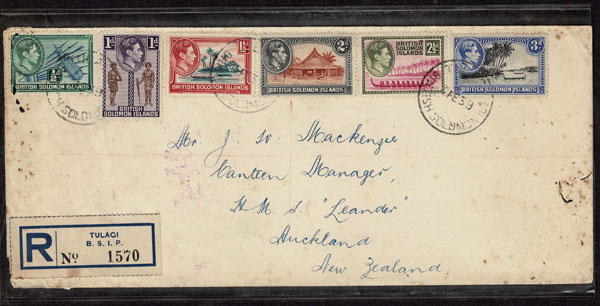 ½d
BRITISH SOLOMON ISLANDS
1d 1d
BRITISH SOLOMON ISLANDS
1½d
BRITISH SOLOMON ISLANDS
2d
BRITISH SOLOMON ISLANDS
BRITISH SOLOMON ISLANDS
2½d
3d
BRITISH SOLOMON ISLANDS
FE 39
SH SOLOMON
Mr J. W Mackenzie
Canteen Manager,
H. M. S. "Leander"
Auckland
New Zealand
R
TULAGI
B. S. I. P.
No 1570